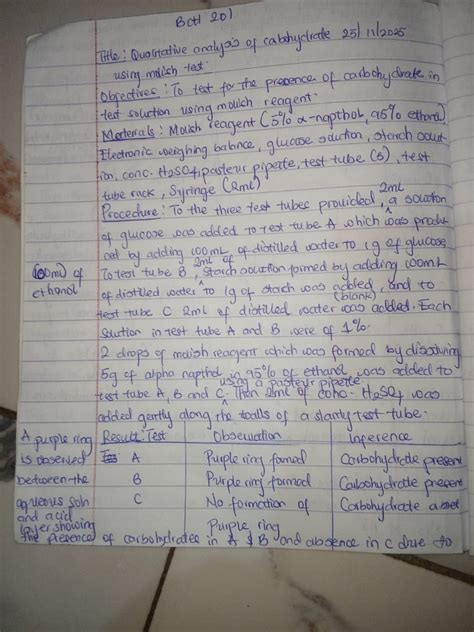 BCH 201
Title: Qualitative analysis of carbohydrate 25/11/2025
using molish test.
Objectives: To test for the presence of carbohydrate in
test solution using molish reagent.
Materials: Molish reagent (5% α-napthol, 95% ethanol),
Electronic weighing balance, glucose solution, starch solut-
ion, conc. H2SO4, pasteur pipette, test tube (6), test
tube rack, Syringe (2ml)
Procedure: To the three test tubes provided, 2ml a solution
of glucose was added to test tube A which was produ-
ced by adding 100mL of distilled water to 1g of glucose
To test tube B, 2ml of starch solution formed by adding 100mL
of distilled water to 1g of starch was added, and to
test tube C 2ml of distilled water (blank) was added. Each
Solution in test tube A and B were of 1%.
(100ml) of
ethanol
2 drops of molish reagent which was formed by dissolving
5g of alpha napthol in 95% of ethanol was added to
test tube A, B and C. using a pasteur pipette Then 2ml of conc. H2SO4 was
added gently along the walls of a slanty test tube.
Result: Test Observation Inference
A Purple ring formed Carbohydrate present
B Purple ring formed Carbohydrate present
C No formation of Carbohydrate
Purple ring
A purple ring
is observed
between the
aqueous soln
and acid
layer showing
the presence of carbohydrates in A & B and absence in C due to